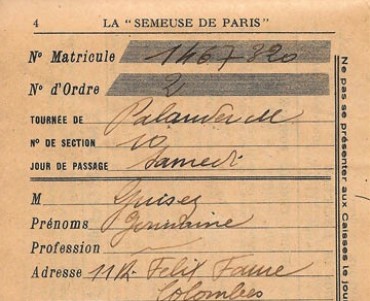 4 LA "SEMEUSE DE PARIS"
Nº Matricule 1467-820
Nº d'Ordre 2
TOURNÉE DE M
Nº DE SECTION 10
JOUR DE PASSAGE Samedi
M Guisez
Prénoms Germaine
Profession
Adresse 11 R. Felix Faure
Colombes
Ne pas se présenter aux Caisses le jou